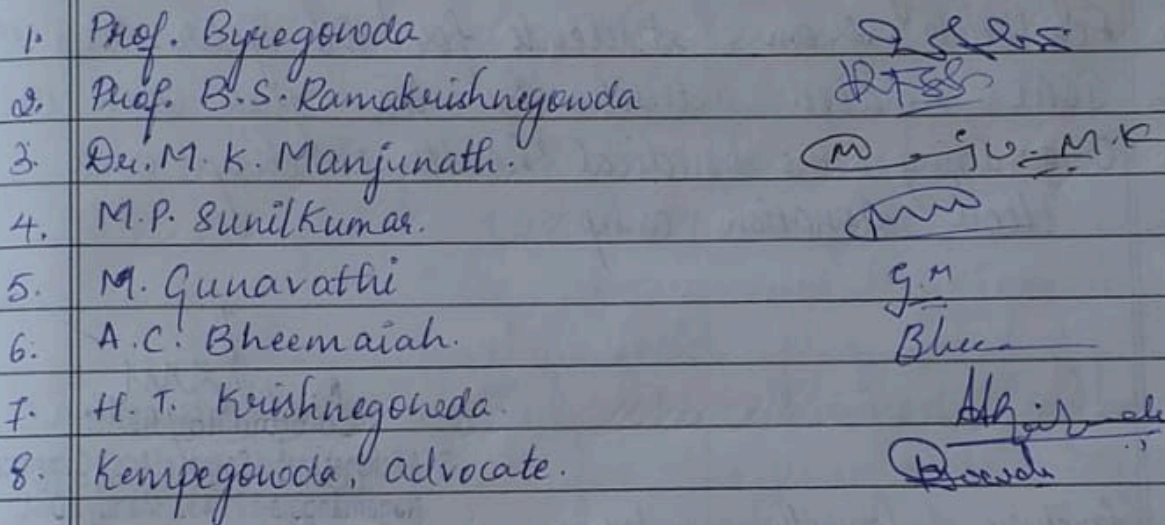 1. Prof. Byregowda
2. Prof. B.S. Ramakrishnegowda
3. Dr. M. K. Manjunath. M.K
4. M.P. SunilKumar.
5. M. Gunavathi G.M
6. A.C. Bheemaiah. Bhee
7. H. T. Krishnegowda.
8. Kempegowda, advocate.